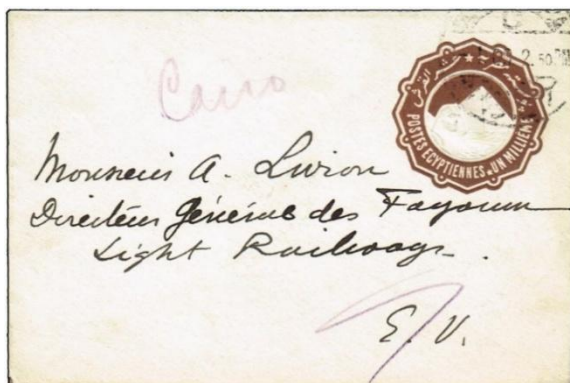 Cairo
POSTES EGYPTIENNES UN MILLIEME
Monsieur A.
Directeur Général des Fayoum
Light Railways.
E. V.